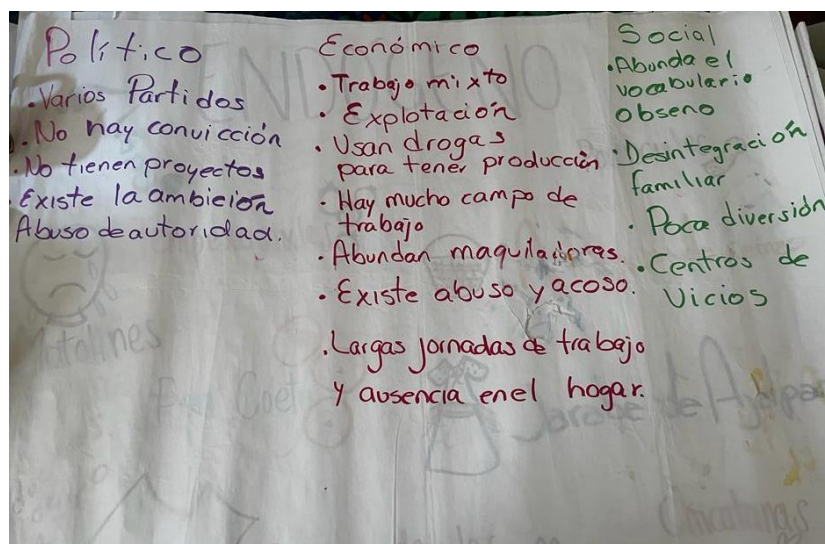 Político
.Varios Partidos
.No hay convicción
.No tienen proyectos
.Existe la ambición
Abuso de autoridad.
Económico
.Trabajo mixto
. Explotación
. Usan drogas
para tener producción
. Hay mucho campo de
trabajo
.Abundan maquiladoras.
. Existe abuso y acoso.
.Largas jornadas de trabajo
y ausencia en el hogar.
Social
.Abunda el
vocabulario
obseno
.Desintegración
familiar
. Poca diversión
.Centros de
Vicios
ENDOGENO